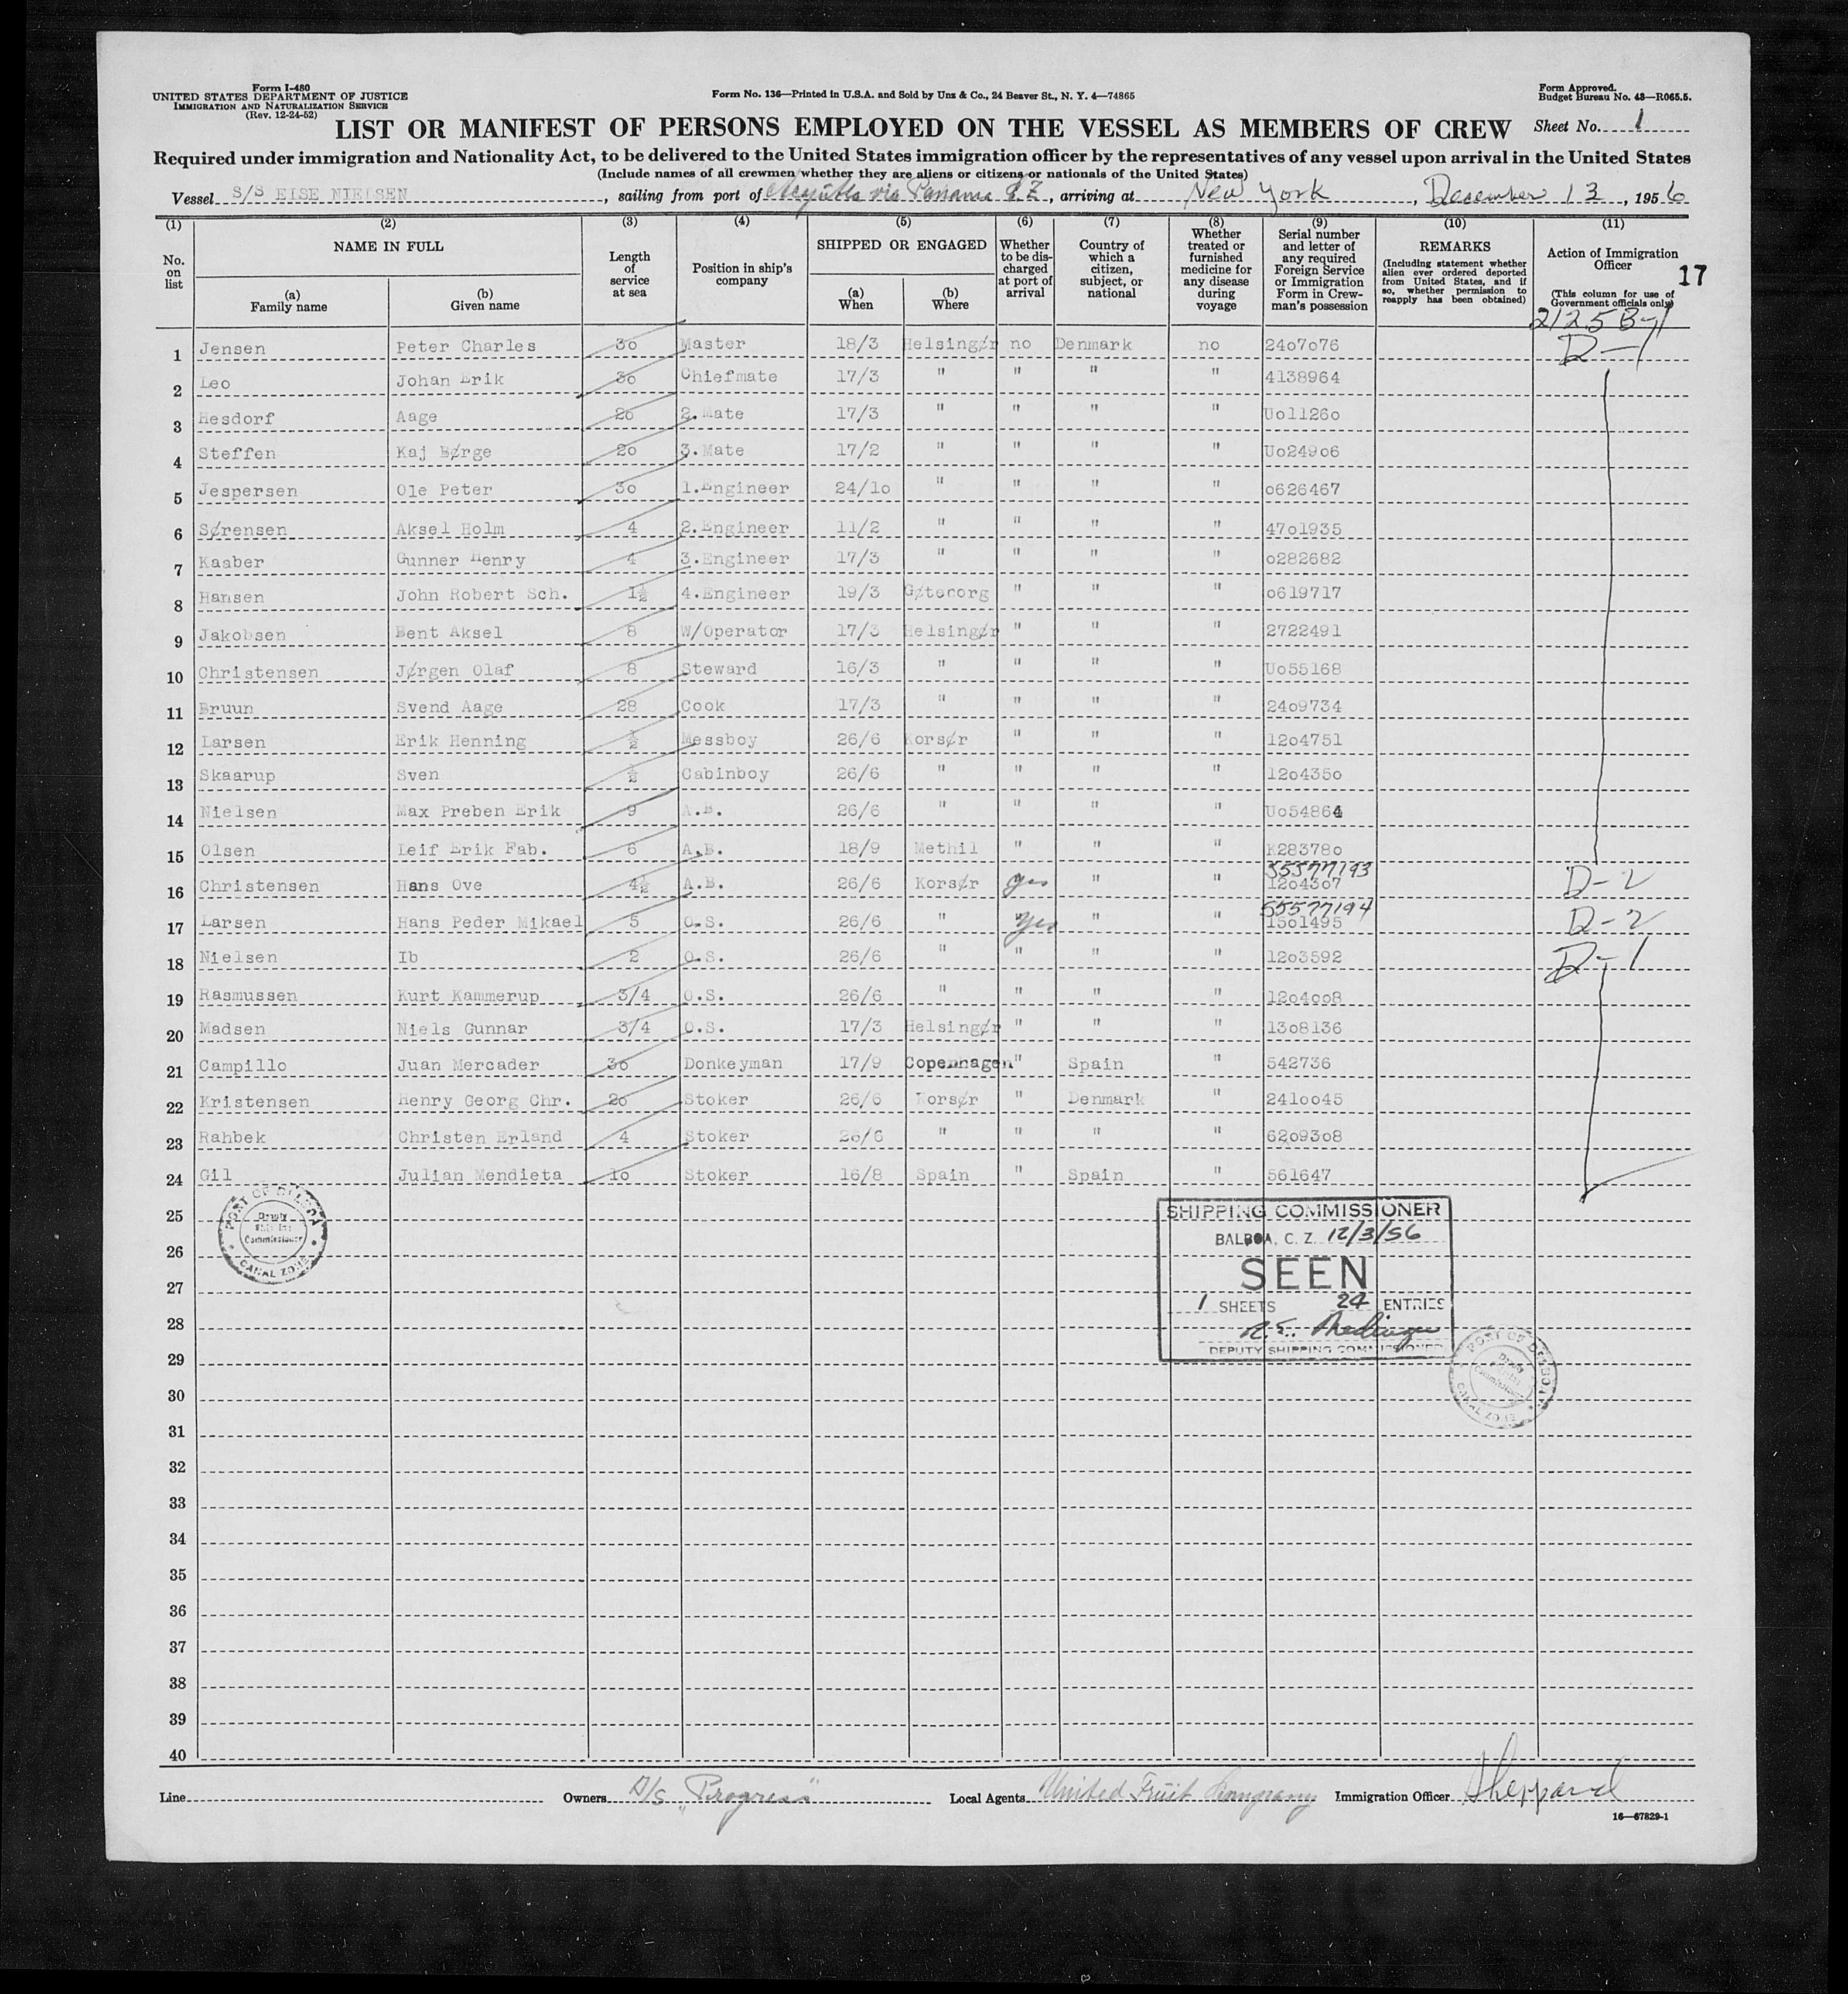 Form I-480
UNITED STATES DEPARTMENT OF JUSTICE
IMMIGRATION AND NATURALIZATION SERVICE
(Rev. 12-24-52)
Form No. 136—Printed in U.S.A. and Sold by Unz & Co., 24 Beaver St., N. Y. 4—74865
Form Approved.
Budget Bureau No. 43—R065.5.
LIST OR MANIFEST OF PERSONS EMPLOYED ON THE VESSEL AS MEMBERS OF CREW Sheet No. 1
Required under immigration and Nationality Act, to be delivered to the United States immigration officer by the representatives of any vessel upon arrival in the United States
(Include names of all crewmen whether they are aliens or citizens or nationals of the United States)
Vessel S/S EISE NIELSEN, sailing from port of via Panama C.Z., arriving at New York, December 13, 1956
(1) No. on list
(2) NAME IN FULL (a) Family name (b) Given name
(3) Length of service at sea
(4) Position in ship's company
(5) SHIPPED OR ENGAGED (a) When (b) Where
(6) Whether to be discharged at port of arrival
(7) Country of which a citizen, subject, or national
(8) Whether treated or furnished medicine for any disease during voyage
(9) Serial number and letter of any required Foreign Service or Immigration Form in Crewman's possession
(10) REMARKS (Including statement whether alien ever ordered deported from United States, and if so, whether permission to reapply has been obtained)
(11) Action of Immigration Officer (This column for use of Government officials only)
17
2125B-1
1 Jensen Peter Charles 30 Master 18/3 Helsingør no Denmark no 2407076 D-1
2 Leo Johan Erik 30 Chiefmate 17/3 " " " " 4138964
3 Hesdorf Aage 20 2.Mate 17/3 " " " " Uo11260
4 Steffen Kaj Børge 20 3.Mate 17/2 " " " " Uo24906
5 Jespersen Ole Peter 30 1.Engineer 24/10 " " " " 0626467
6 Sørensen Aksel Holm 4 2.Engineer 11/2 " " " " 4701935
7 Kaaber Gunner Henry 4 3.Engineer 17/3 " " " " 0282682
8 Hansen John Robert Sch. 1½ 4.Engineer 19/3 Gøteborg " " " 0619717
9 Jakobsen Bent Aksel 8 W/Operator 17/3 Helsingør " " " 2722491
10 Christensen Jørgen Olaf 8 Steward 16/3 " " " " Uo55168
11 Bruun Svend Aage 28 Cook 17/3 " " " " 2409734
12 Larsen Erik Henning ½ Messboy 26/6 Korsør " " " 1204751
13 Skaarup Sven ½ Cabinboy 26/6 " " " " 1204350
14 Nielsen Max Preben Erik 9 A.B. 26/6 " " " " Uo54864
15 Olsen Leif Erik Fab. 6 A.B. 18/9 Methil " " " K283780
16 Christensen Hans Ove 4½ A.B. 26/6 Korsør yes " " 55577193 1204307 D-2
17 Larsen Hans Peder Mikael 5 O.S. 26/6 " yes " " 55577194 1501495 D-2
18 Nielsen Ib 2 O.S. 26/6 " " " " 1203592 D-1
19 Rasmussen Kurt Kammerup 3/4 O.S. 26/6 " " " " 1204008
20 Madsen Niels Gunnar 3/4 O.S. 17/3 Helsingør " " " 1308136
21 Campillo Juan Mercader 30 Donkeyman 17/9 Copenhagen " Spain " 542736
22 Kristensen Henry Georg Chr. 20 Stoker 26/6 Korsør " Denmark " 2410045
23 Rahbek Christen Erland 4 Stoker 26/6 " " " " 6209308
24 Gil Julian Mendieta 10 Stoker 16/8 Spain " Spain " 561647
25
26
27
28
29
30
31
32
33
34
35
36
37
38
39
40
PORT OF BALBOA
Deputy Shipping Commissioner
CANAL ZONE
SHIPPING COMMISSIONER
BALBOA, C. Z. 12/3/56
SEEN
1 SHEETS 24 ENTRIES
R.E.
DEPUTY SHIPPING COMMISSIONER
PORT OF BALBOA
Deputy Shipping Commissioner
CANAL ZONE
Line Owners A/S "Progress" Local Agents United Fruit Company Immigration Officer Sheppard
16—67829-1